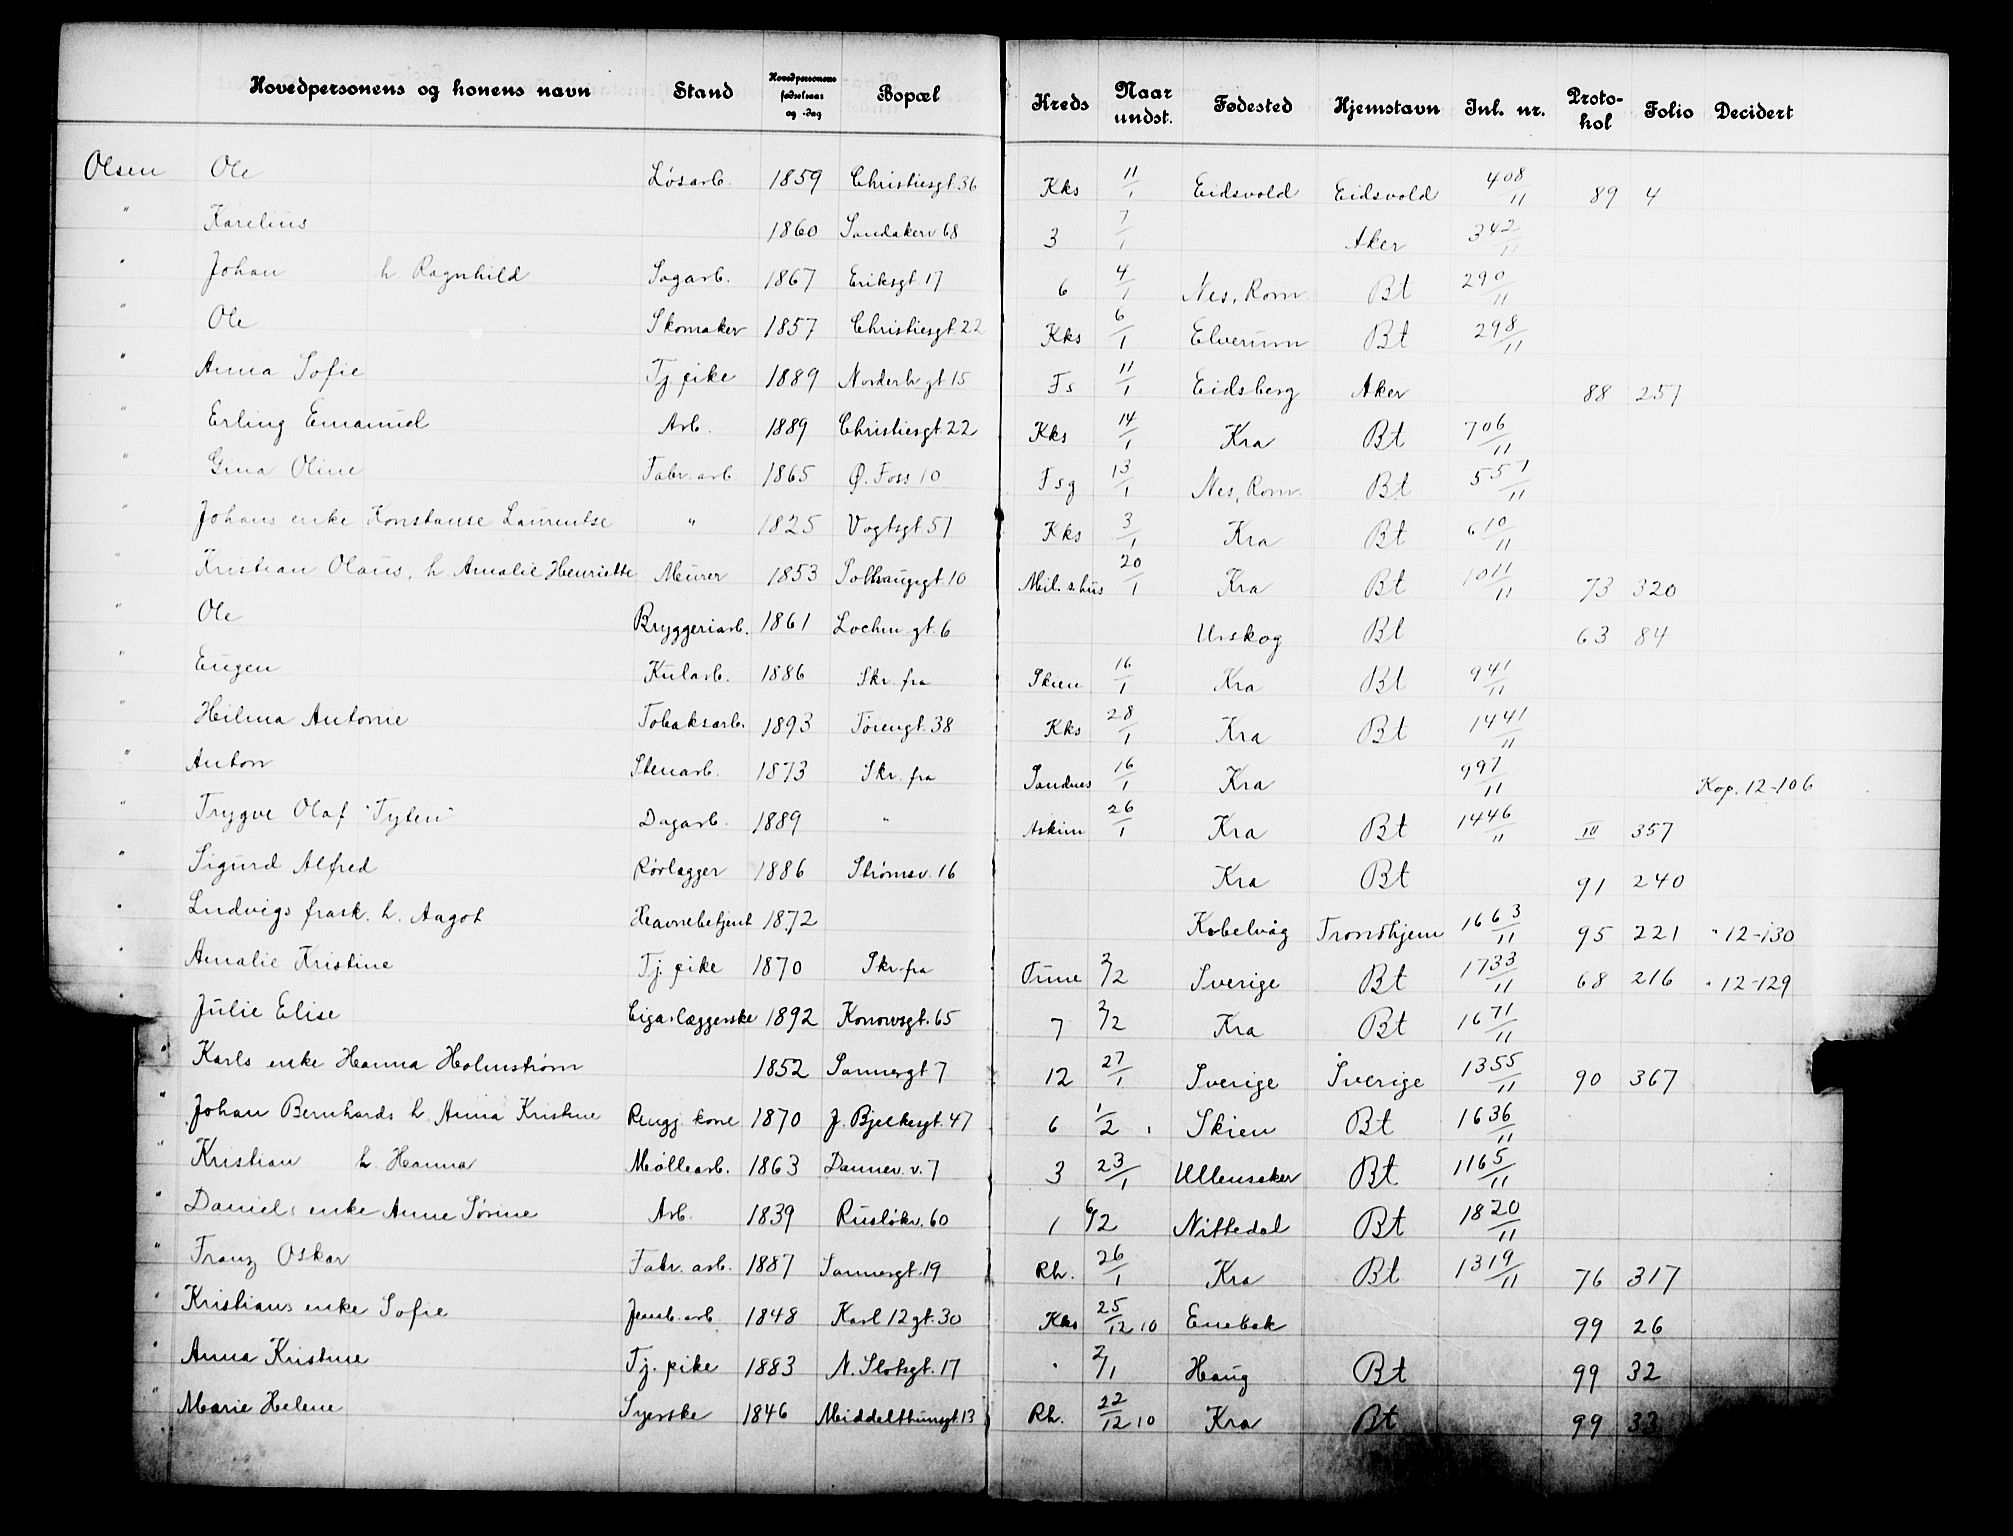 Hovedpersonens og konens navn Stand Hovedpersonens fødselsaar og -dag Bopæl Kreds Naar undst. Fødested Hjemstavn Inl. nr. Protokol Folio Decidert
Olsen Ole Løsarb. 1859 Christiesgt. 36 Kks 11/1 Eidsvold Eidsvold 408/11 89 4
" Karelius 1860 Sandakerv 68 3 7/1 Aker 342/11
" Johan h. Ragnhild Sagarb. 1867 Eriksgt 17 6 4/1 Nes, Rom. Bt 290/11
" Ole Skomaker 1857 Christiesgt. 22 Kks 6/1 Elverum Bt 298/11
" Anna Sofie Tj. pike 1889 Norderh. gt. 15 Fs 11/1 Eidsberg Aker 88 257
" Erling Emanuel Arb. 1889 Christiesgt. 22 Kks 14/1 Kra Bt 706/11
" Gina Oline Fabr. arb 1865 Ø. Foss 10 Fsg 13/1 Nes, Rom. Bt 557/11
" Johans enke Konstanse Laurentse " 1825 Vogtsgt. 57 Kks 3/1 Kra Bt 610/11
" Kristian Olaus, h. Amalie Henriette Murer 1853 Solhauggt. 10 Mil. s.hus 20/1 Kra Bt 1011/11 73 320
" Ole Bryggeriarb. 1861 Lochen gt. 6 Urskog Bt 63 84
" Eugen Kularb. 1886 Skr. fra Skien 16/1 Kra Bt 941/11
" Hilma Antonie Tobaksarb. 1893 Tøiengt. 38 Kks 28/1 Kra Bt 1441/11
" Anton Stenarb. 1873 Skr. fra Sandnes 16/1 Kra 997/11 Kop. 12-106
" Trygve Olaf "Tyten" Dagarb. 1889 " Askim 26/1 Kra Bt 1446/11 III 357
" Sigurd Alfred Rørlægger 1886 Strømsv. 16 Kra Bt 91 240
" Ludvigs frask. h. Aagot Havnebetjent 1872 Kabelvåg Trondhjem 1663/11 95 221 " 12-130
" Amalie Kristine Tj. pike 1870 Skr. fra Tune 2/2 Sverige Bt 1733/11 68 216 " 12-129
" Julie Elise Cigarlæggerske 1892 Konowsgt. 65 7 2/2 Kra Bt 1671/11
" Karls enke Hanna Holmstrøm 1852 Sannergt 7 12 27/1 Sverige Sverige 1355/11 90 367
" Johan Bernhards h. Anna Kristine Rengj. kone 1870 J. Bjelkesgt. 47 6 1/2 Skien Bt 1636/11
" Kristian h. Hanna Møllearb. 1863 Dannev. v. 7 3 23/1 Ullensaker Bt 1165/11
" Daniels enke Anne Sørine Arb. 1839 Ruseløkv. 60 1 6/2 Nittedal Bt 1820/11
" Franz Oskar Fabr. arb. 1887 Sannergt. 19 Rh. 26/1 Kra Bt 1319/11 76 317
" Kristians enke Sofie Jernb. arb. 1848 Karl 12 gt. 30 Kks 25/12 10 Enebak 99 26
" Anna Kristine Tj. pike 1883 N. Slotsgt. 17 " 2/1 Haug Bt 99 32
" Marie Helene Syerske 1846 Middelthunsgt. 13 Rh. 22/12 10 Kra Bt 99 33